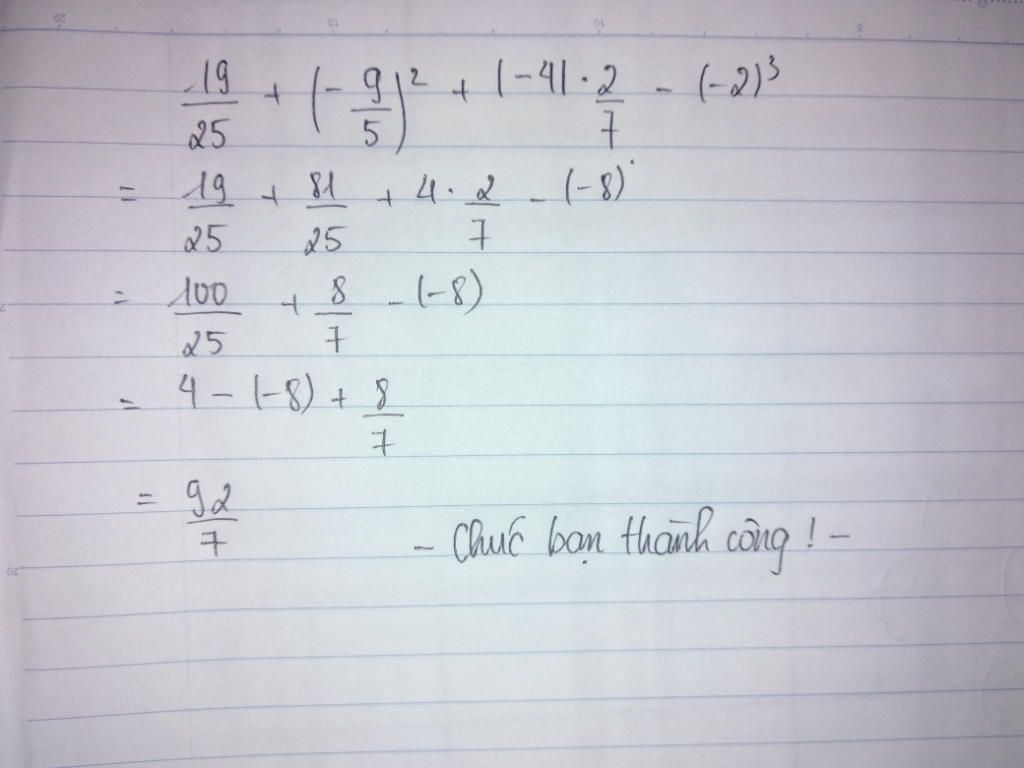 19/25 + (-9/5)² + |-4| · 2/7 - (-2)³
= 19/25 + 81/25 + 4 · 2/7 - (-8)
= 100/25 + 8/7 - (-8)
= 4 - (-8) + 8/7
= 92/7
- Chúc bạn thành công! -